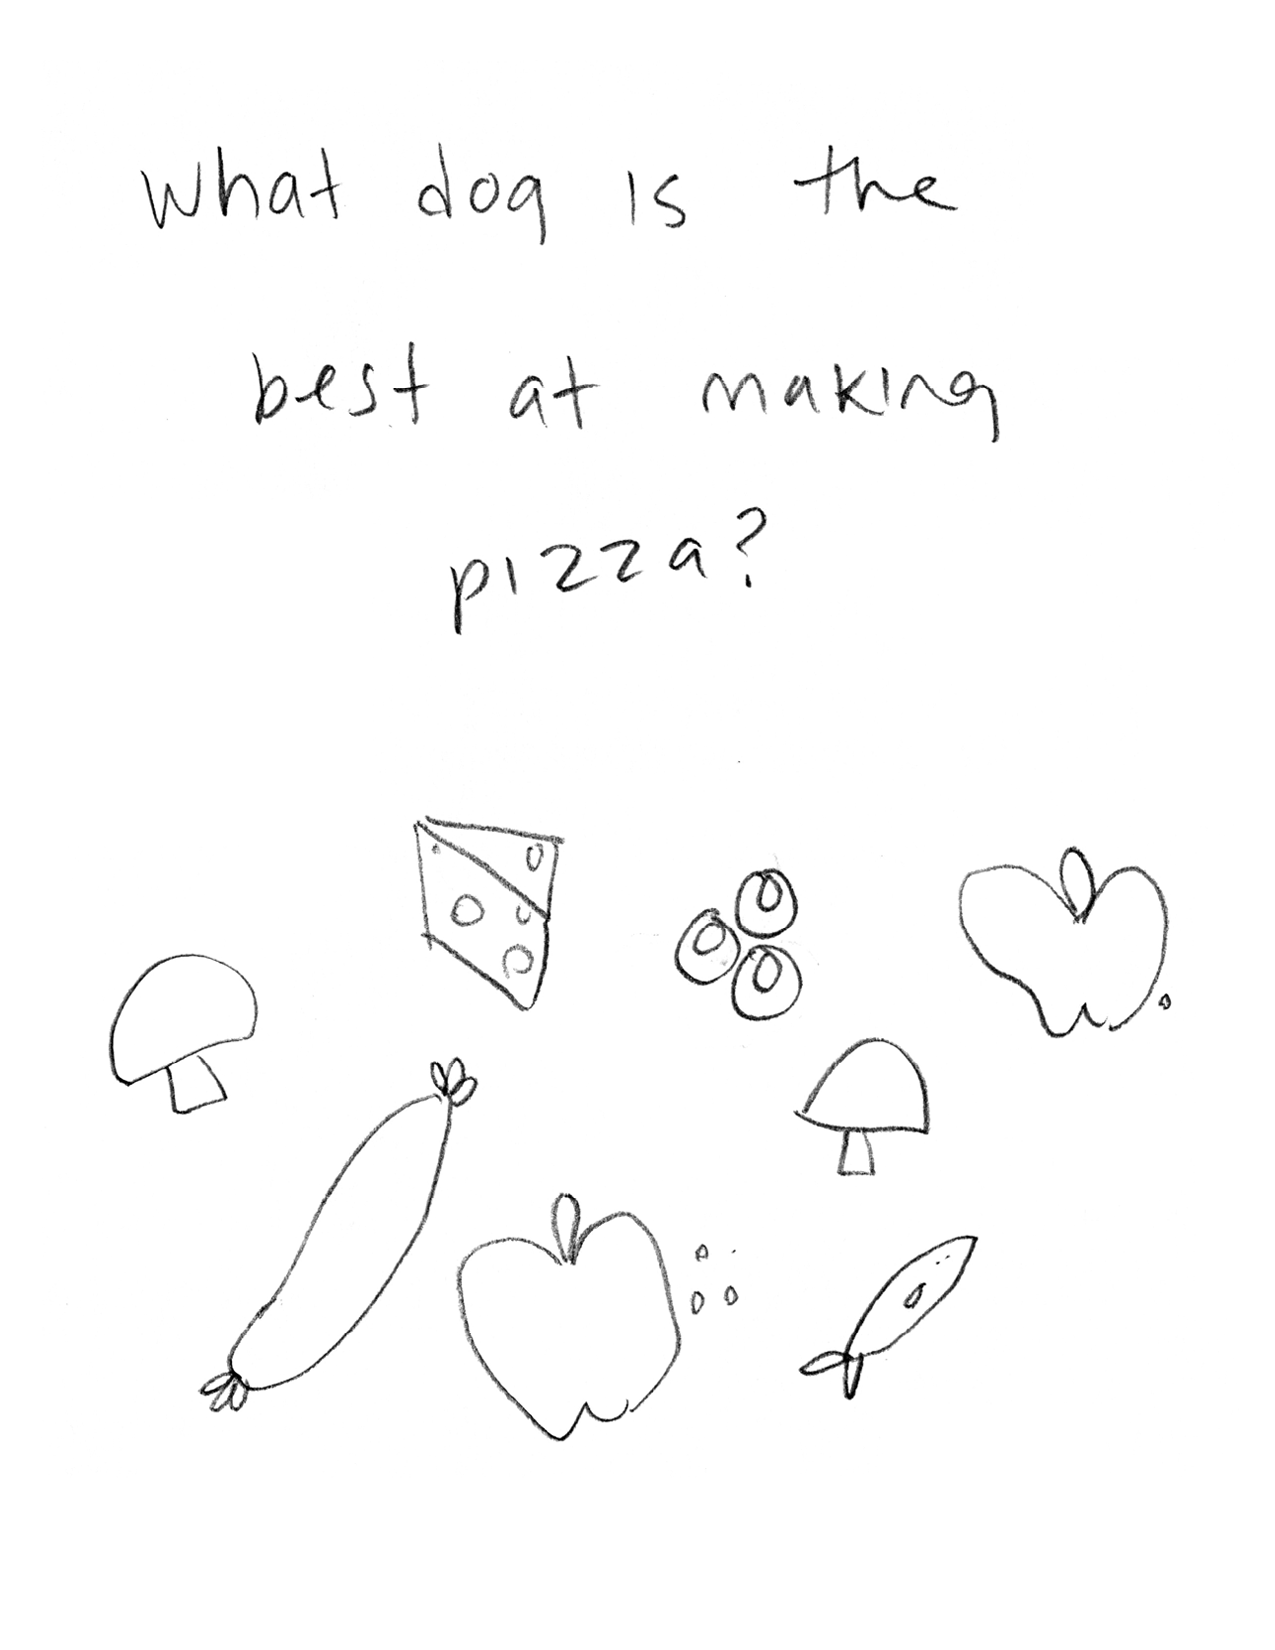 what dog is the
best at making
pizza?